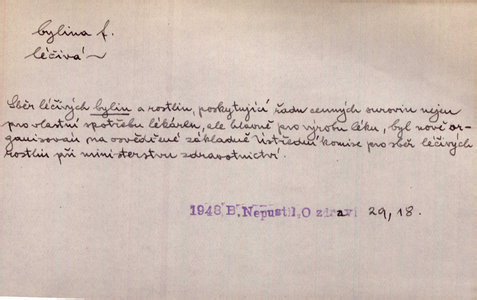 bylina f.
léčivá ~
Sběr léčivých bylin a rostlin, poskytující řadu cenných surovin nejen
pro vlastní spotřebu lékáren, ale hlavně pro výrobu léků, byl nově or-
ganisován na osvědčené základně Ústřední komise pro sběr léčivých
rostlin při ministerstvu zdravotnictví.
1948 B. Nepustil, O zdraví 29, 18.